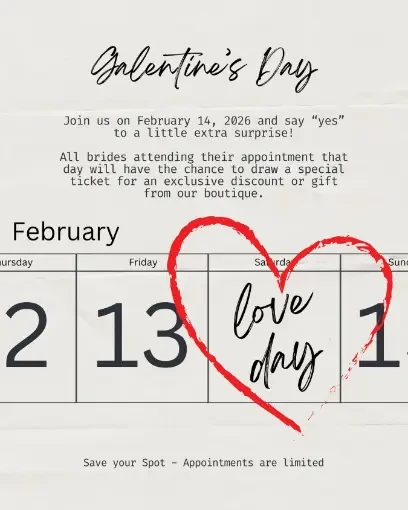 Galentine's Day
Join us on February 14, 2026 and say “yes”
to a little extra surprise!
All brides attending their appointment that
day will have the chance to draw a special
ticket for an exclusive discount or gift
from our boutique.
February
Friday
13
love
day
Save your Spot – Appointments are limited